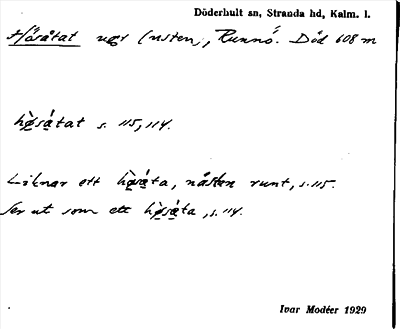 Döderhult sn, Stranda hd, Kalm. l.
Hösåtat
Runnö. Död 608 m
hø̀såtat s. 115, 114.
Liknar ett hø̀såta, nästen runt, s. 115.
Ser ut som ett hø̀såta, s. 114.
Ivar Modéer 1929